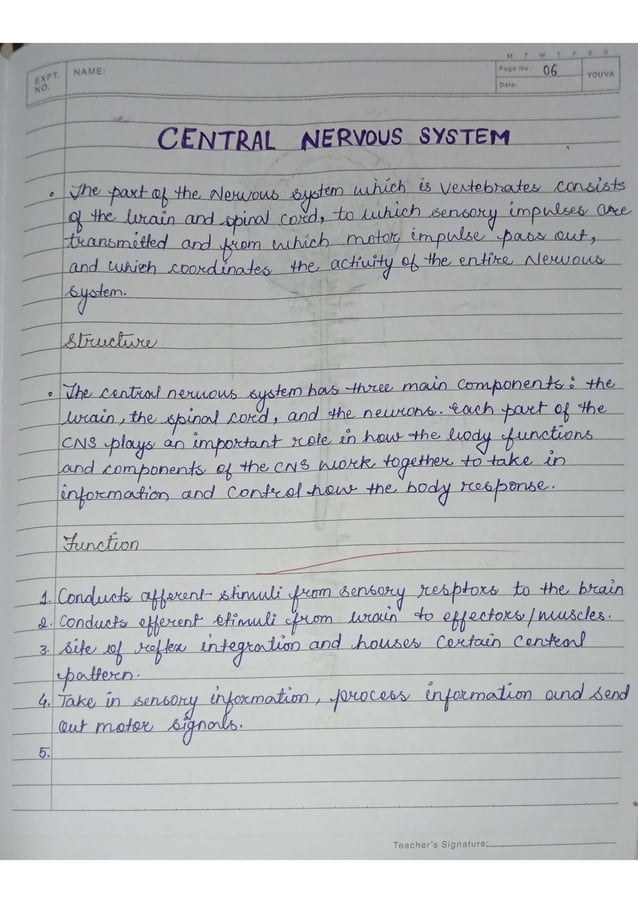 M T W T F S S
EXPT. NO.
NAME:
Page No.: 06
YOUVA
Date:
CENTRAL NERVOUS SYSTEM
• The part of the Nervous System which is vertebrates consists
of the brain and spinal cord, to which sensory impulses are
transmitted and from which motor impulse pass out,
and which coordinates the activity of the entire Nervous
System.
Structure
• The central nervous system has three main components: the
brain, the spinal cord, and the neurons. Each part of the
CNS plays an important role in how the body functions
and components of the CNS work together to take in
information and control how the body response.
Function
1. Conducts afferent stimuli from sensory resptors to the brain
2. Conducts efferent stimuli from brain to effectors/muscles.
3. Site of reflex integration and houses Certain Central
pattern.
4. Take in sensory information, process information and send
out motor signals.
5.
Teacher's Signature: